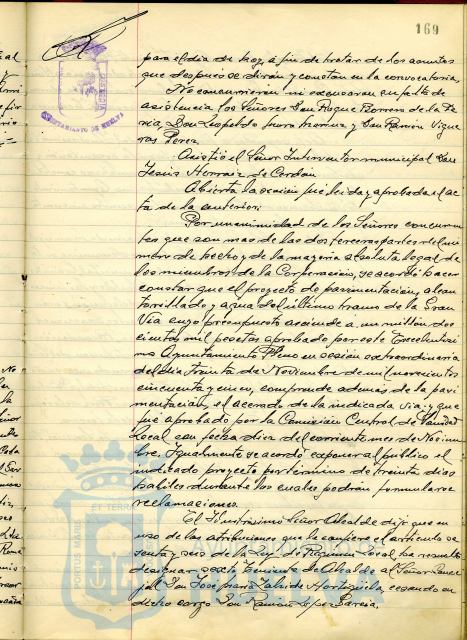 169
para el día de hoy, a fin de tratar de los asuntos
que despues se dirán y constan en la convocatoria.
No concurrieron ni excusaron su falta de
asistencia los Señores Don Roque Barrera de la Fe
ria, Don Leopoldo y Don Ramón Vigue
ras Perez.
Asistió el Señor Interventor municipal Don
Jesús Herraiz de Cordán
Abierta la sesión fué leida y aprobada el ac
ta de la anterior:
Por unanimidad de los Señores concurren
tes que son mas de las dos terceras partes del nú
mero de hecho y de la mayoria absoluta legal de
los miembros de la Corporación, se acordó hacer
constar que el proyecto de pavimentación, alcan
tarillado y agua del último tramo de la Gran
Via cuyo presupuesto asciende a un millón dos
cientas mil pesetas aprobado por este Excelentísi
mo Ayuntamiento Pleno en sesión extraordinaria
del día treinta de Noviembre de mil novecientos
cincuenta y cinco, comprende además de la pavi
mentación, el acerado de la indicada via; y que
fué aprobado por la Comisión Central de Sanidad
Local con fecha diez del corriente mes de Noviem
bre. Igualmente se acordó exponer al público el
indicado proyecto por término de treinta dias
habiles durante los cuales podrán formularse
reclamaciones.
El Ilustrísimo Señor Alcalde dijo que en
uso de las atribuciones que le confiere el artículo se
senta y seis de la Ley de Régimen Local, ha resuelto
designar sexto Teniente de Alcalde al Señor Conce
jal Don José María de Hortigüela, cesando en
dicho cargo Don Ramón Lopez Garcia.
AYUNTAMIENTO DE HUELVA
PORTUS MARIS ET TERRAE